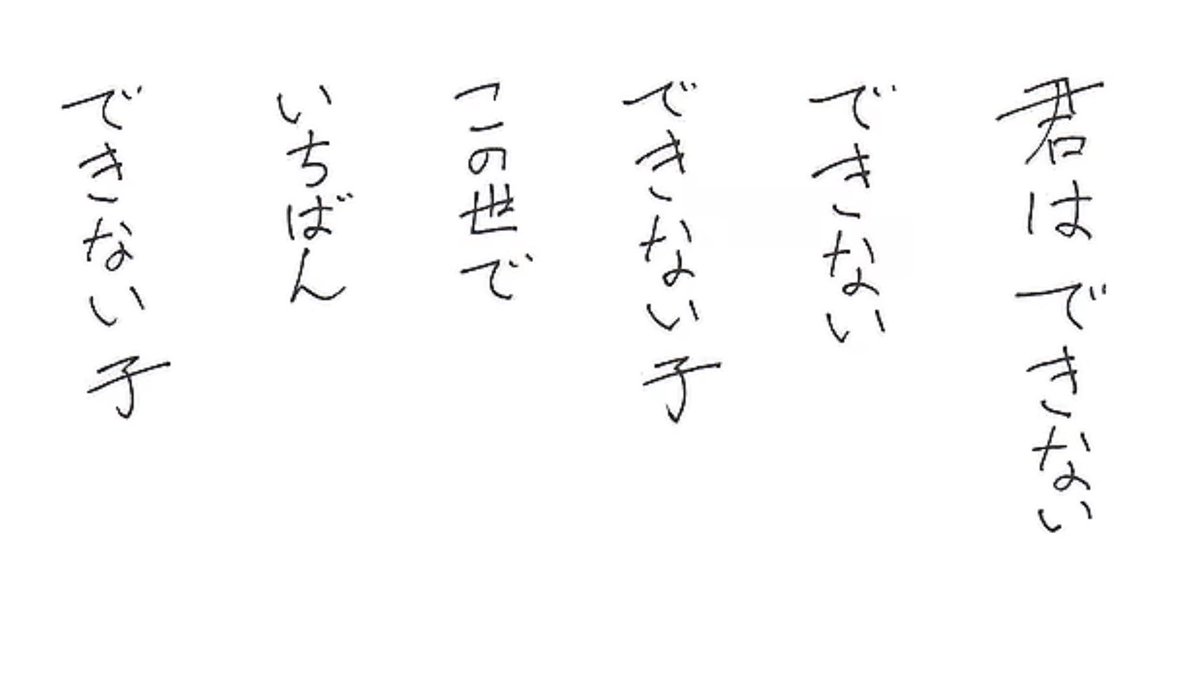 君はできない
できない
できない子
この世で
いちばん
できない子